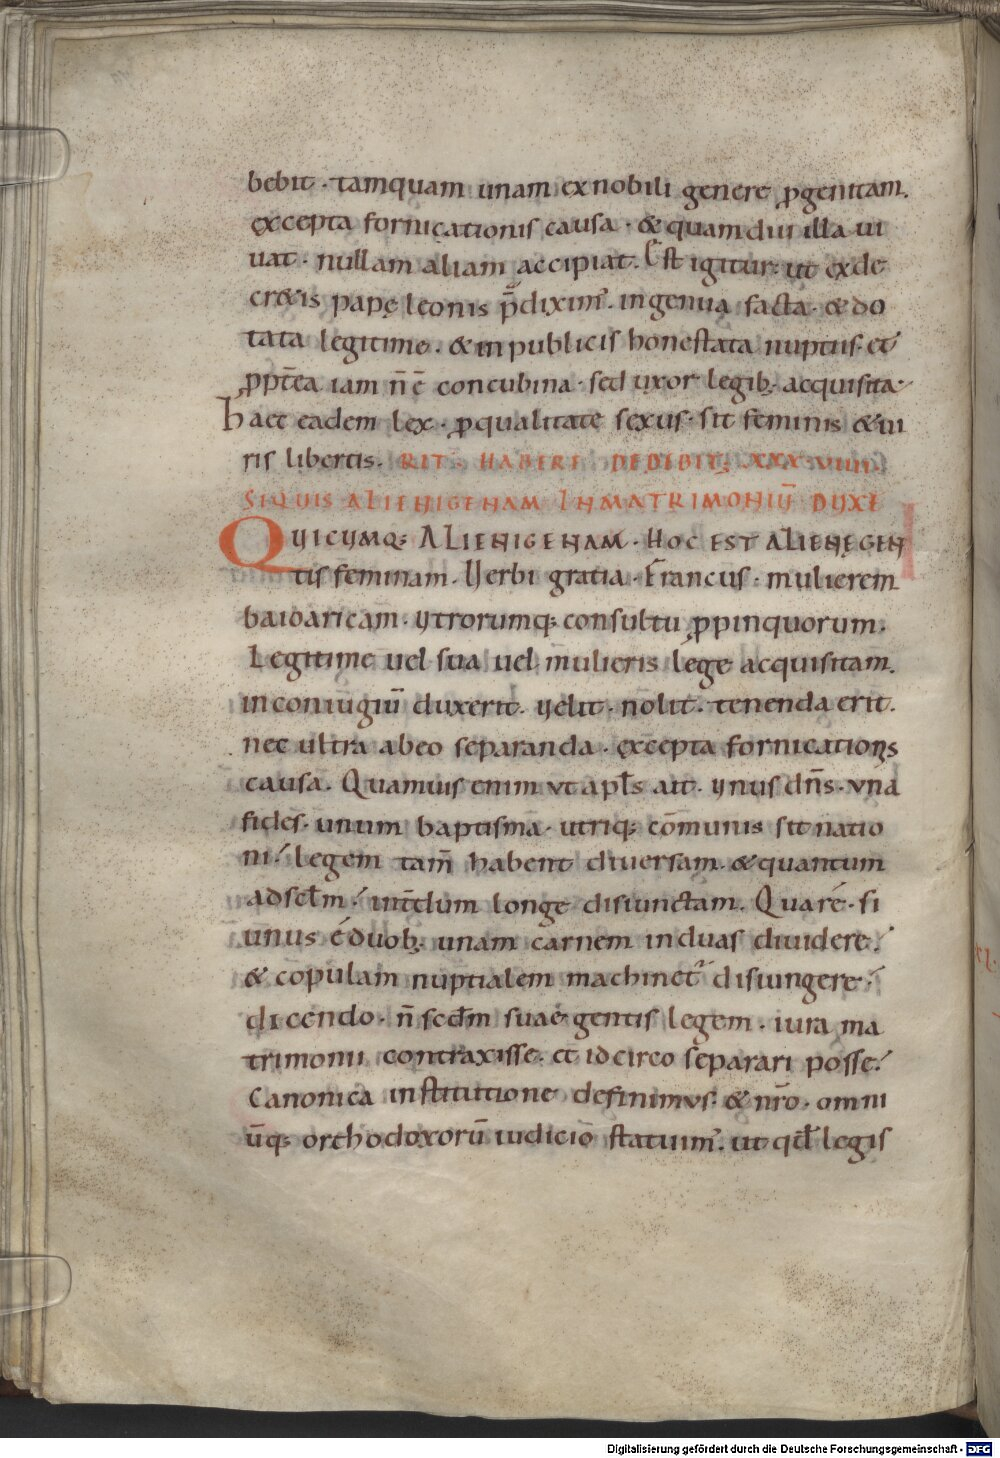 bebit · tamquam unam ex nobili genere ꝓgenitam.
excepta fornicationis causa · & quamdiu illa ui
uat · nullam aliam accipiat. Est igitur · ut ex de
cr&is papę leonis p̄dixim᾽. ingenua facta · & do
tata legitime. & in publicis honestata nuptiis · et
ꝓpt̄ea iam n̄ ē concubina · sed uxor legib; acquisita ·
haec eadem lex · ꝓ qualitate sexus · sit feminis & ui
ris libertis. RIT · HABERE DEDEBIT; XXXVIIII
SI QUIS ALIENIGENAM IN MATRIMONIŪ DUXE
QUICUMQ; ALIENIGENAM · HOC EST ALIENĘ GEN
tis feminam. Uerbi gratia · Francus · mulierem
baioaricam · utrorumq; consultu ꝓpinquorum.
Legitime uel sua uel mulieris lege acquisitam.
in coniugiū duxerit. uelit · nolit · tenenda erit.
nec ultra ab eo separanda · excepta fornicationis
causa. Quamuis enim ut apl̄s ait · unus dn̄s · una
fides · unum baptisma · utriq; cōmunis sit natio
ni · legem tam̄ habent diuersam · & quantum
ad scłm · int̄dum longe disiunctam. Quare · si
unus e duob; unam carnem in duas diuidere ·
& copulam nuptialem machinet᾽ disiungere ·
dicendo · n̄ scdm suae gentis legem · iura ma
trimonii contraxisse · et idcirco separari posse ·
Canonica institutione definimus · & nr̄o · omni
ūq; orthodoxorū iudicio statuim᾽. ut qd̄ legis
Digitalisierung gefördert durch die Deutsche Forschungsgemeinschaft - DFG